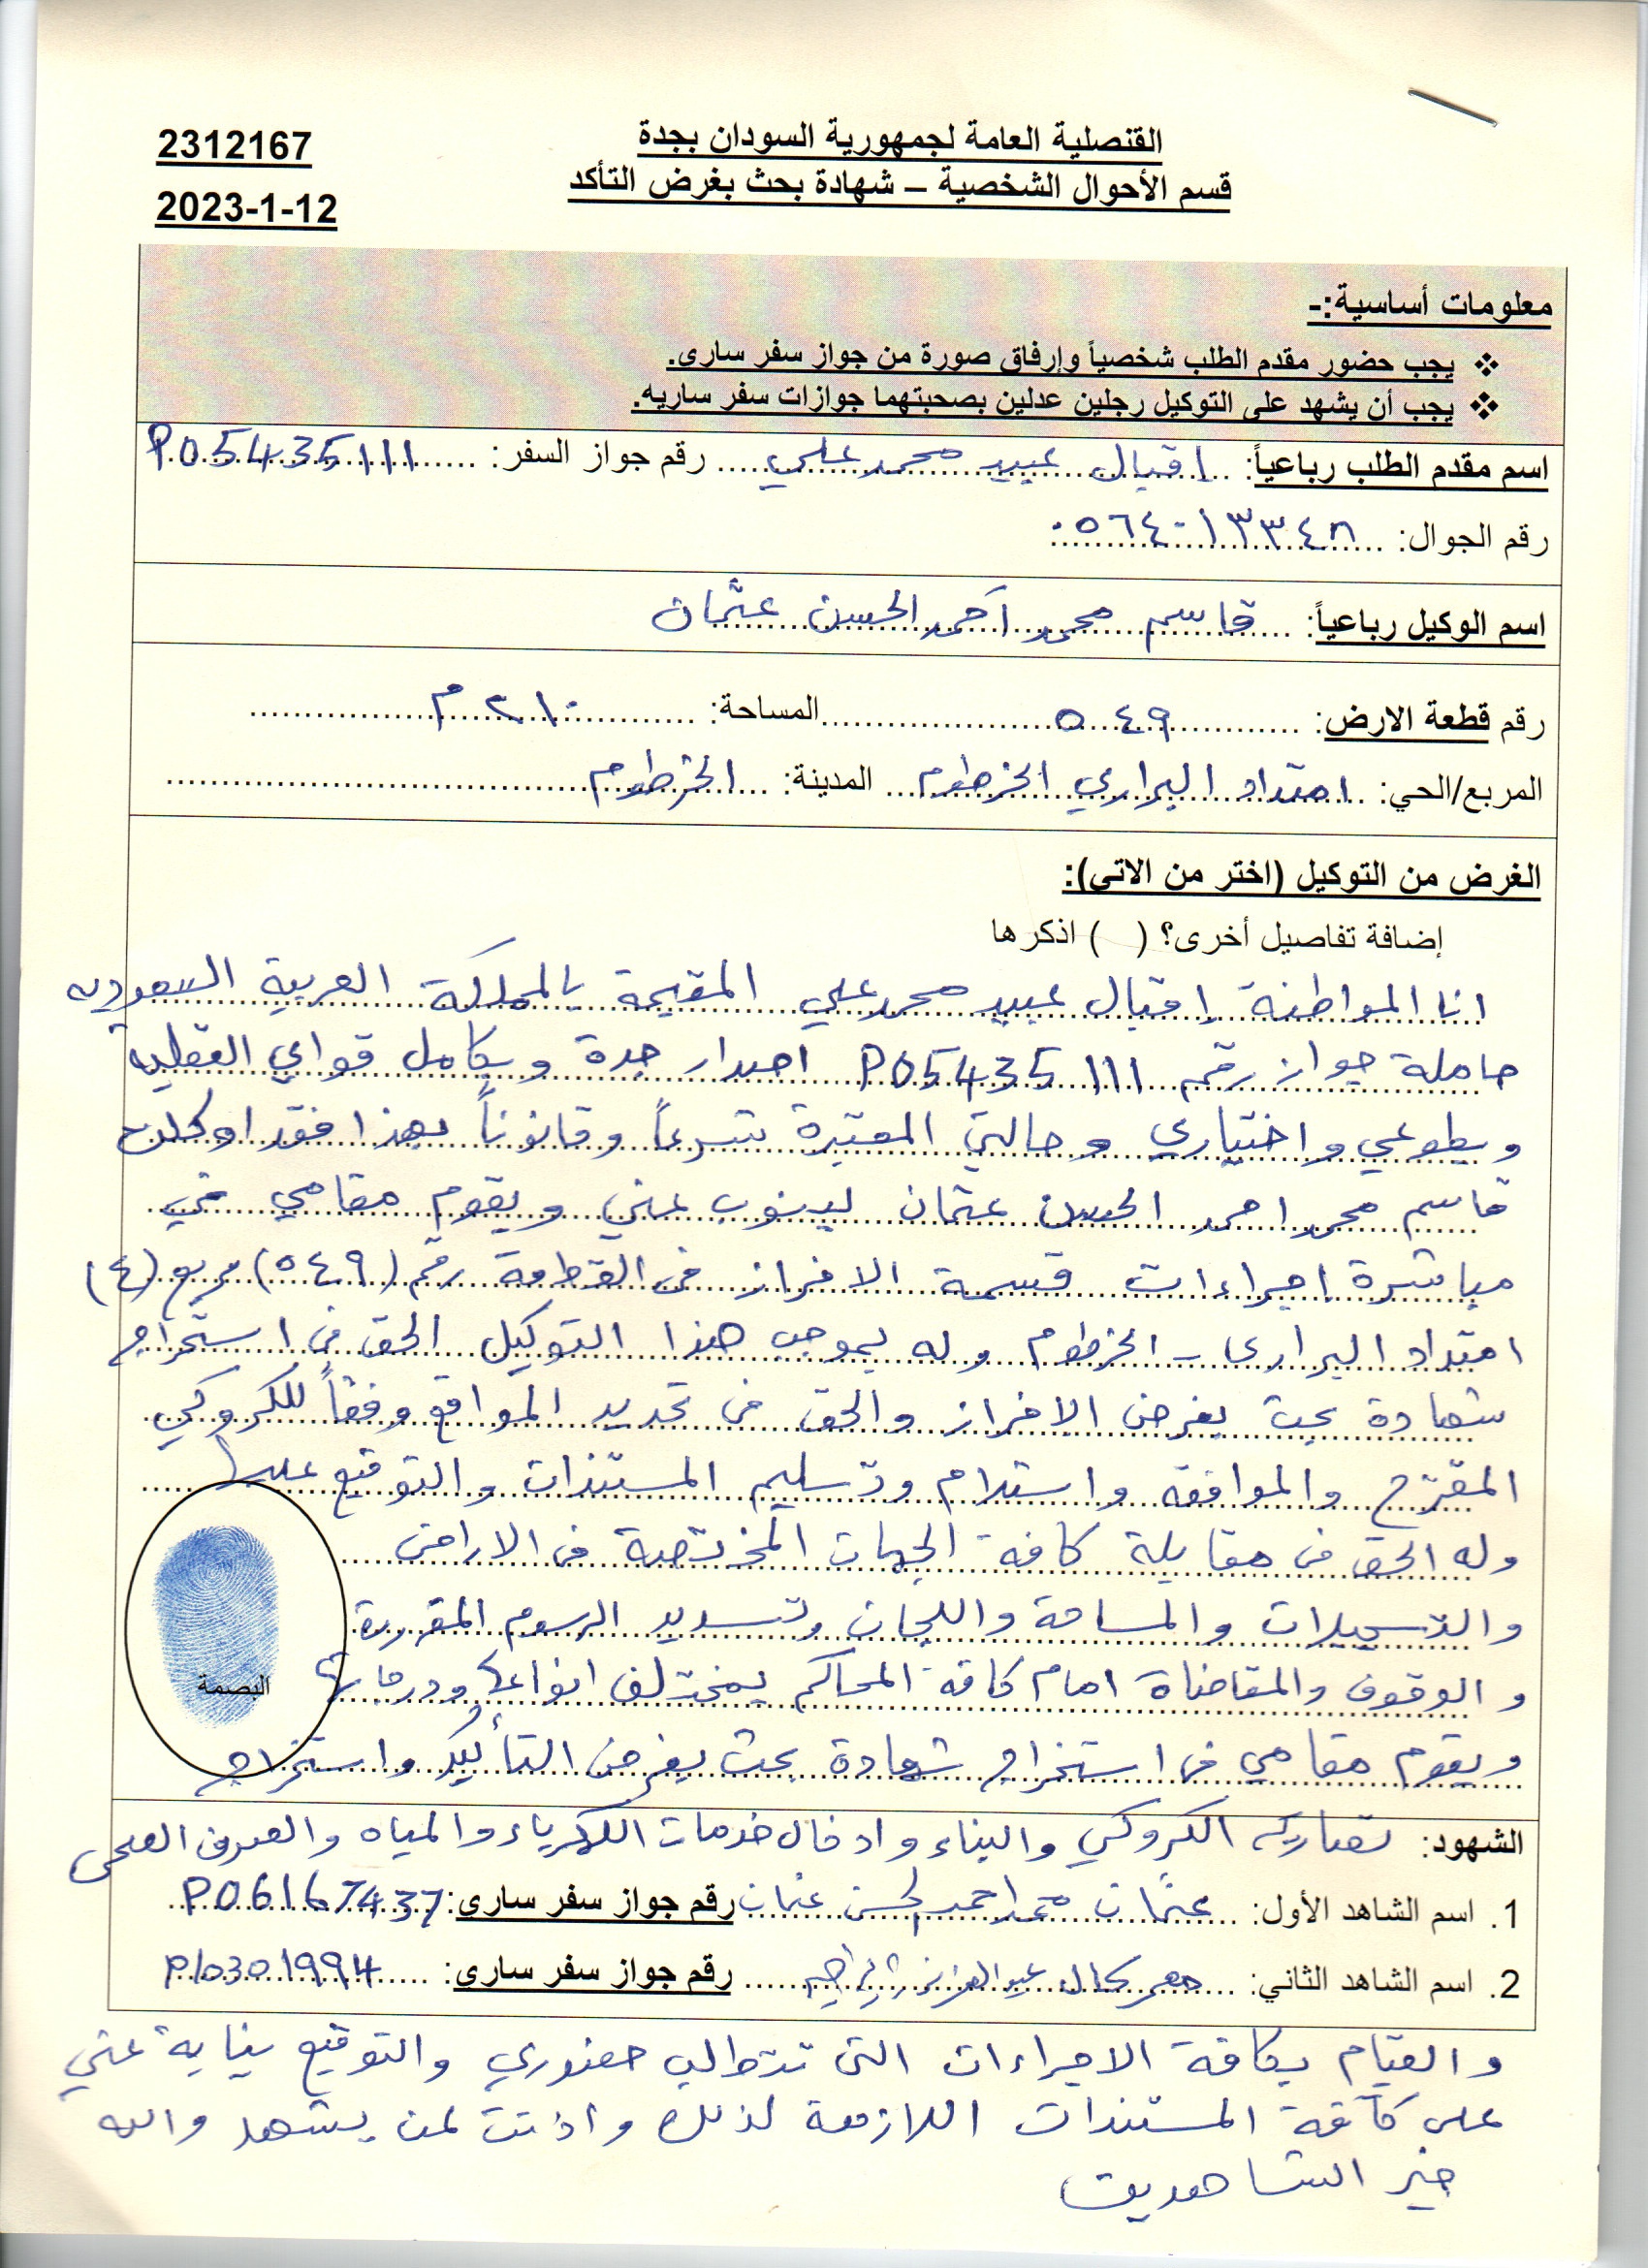 القنصلية العامة لجمهورية السودان بجدة
قسم الأحوال الشخصية – شهادة بحث بغرض التأكد
2312167
2023-1-12
معلومات أساسية:-
❖ يجب حضور مقدم الطلب شخصياً وإرفاق صورة من جواز سفر سارى.
❖ يجب أن يشهد على التوكيل رجلين عدلين بصحبتهما جوازات سفر ساريه.
اسم مقدم الطلب رباعياً: اقبال عبيد محمد علي رقم جواز السفر: P05435111
رقم الجوال: ٠٥٦٤٠١٣٣٤٨
اسم الوكيل رباعياً: قاسم محمد أحمد الحسن عثمان
رقم قطعة الارض: ٥٤٩ المساحة: ٢١٠ م
المربع/الحي: امتداد البراري الخرطوم المدينة: الخرطوم
الغرض من التوكيل (اختر من الاتى):
إضافة تفاصيل أخرى؟ ( ) اذكرها
انا المواطنة إقبال عبيد محمد علي المقيمة بالمملكة العربية السعوديه
حاملة جواز رقم P05435111 اصدار جدة وبكامل قواي العقليه
وبطوعي واختياري وحالتي المعتبرة شرعاً وقانوناً بهذا فقد اوكلت
قاسم محمد احمد الحسن عثمان لينوب عني ويقوم مقامي في
مباشرة اجراءات قسمة الافراز فى القطعة رقم (٥٤٩) مربع (٤)
امتداد البرارى - الخرطوم وله بموجب هذا التوكيل الحق فى استخراج
شهادة بحث بغرض الافراز والحق فى تحديد المواقع وفقاً للكروكي
المقترح والموافقه واستلام وتسليم المستندات والتوقيع عليها
وله الحق فى مقابلة كافة الجهات المختصة فى الاراضى
والتسجيلات والمساحة واللجان وتسديد الرسوم المقررة
والوقوف والمقاضاة امام كافة المحاكم بمختلف انواعها ودرجاتها
البصمة
ويقوم مقامي فى استخراج شهادة بحث بغرض التأكيد واستخراج
الشهود: تصاريح الكروكي والبناء وادخال خدمات الكهرباء والمياه والصرف الصحى
1. اسم الشاهد الأول: عثمان محمد احمد الحسن عثمان رقم جواز سفر سارى: P06167437
2. اسم الشاهد الثاني: كمال عبد العزيز رقم جواز سفر سارى: P10301994
والقيام بكافة الاجراءات التى تتطلب حضوري والتوقيع نيابة عني
على كآفة المستندات اللازمة لذلك واذنت لمن يشهد والله
خير الشاهدين